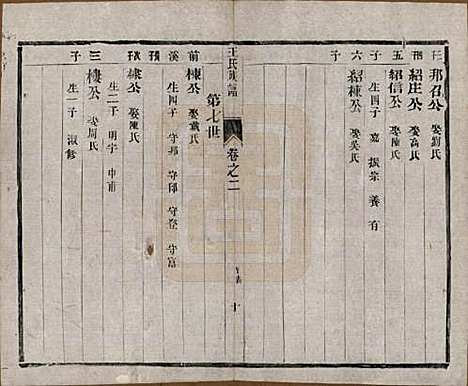 邦召公 娶劉氏
紹庄公 娶高氏
五 紹信公 娶陳氏
子 生四子 嘉 振 崇 養 有
六 紹棟公 娶吳氏
子
王氏族譜
卷之二
十
第七世
前 棟公 娶戴氏
溪 生四子 守邦 守邵 守登 守富
棣公 娶陳氏
生二子 明宇 中甫
三 樓公 娶周氏
子 生一子 淑修